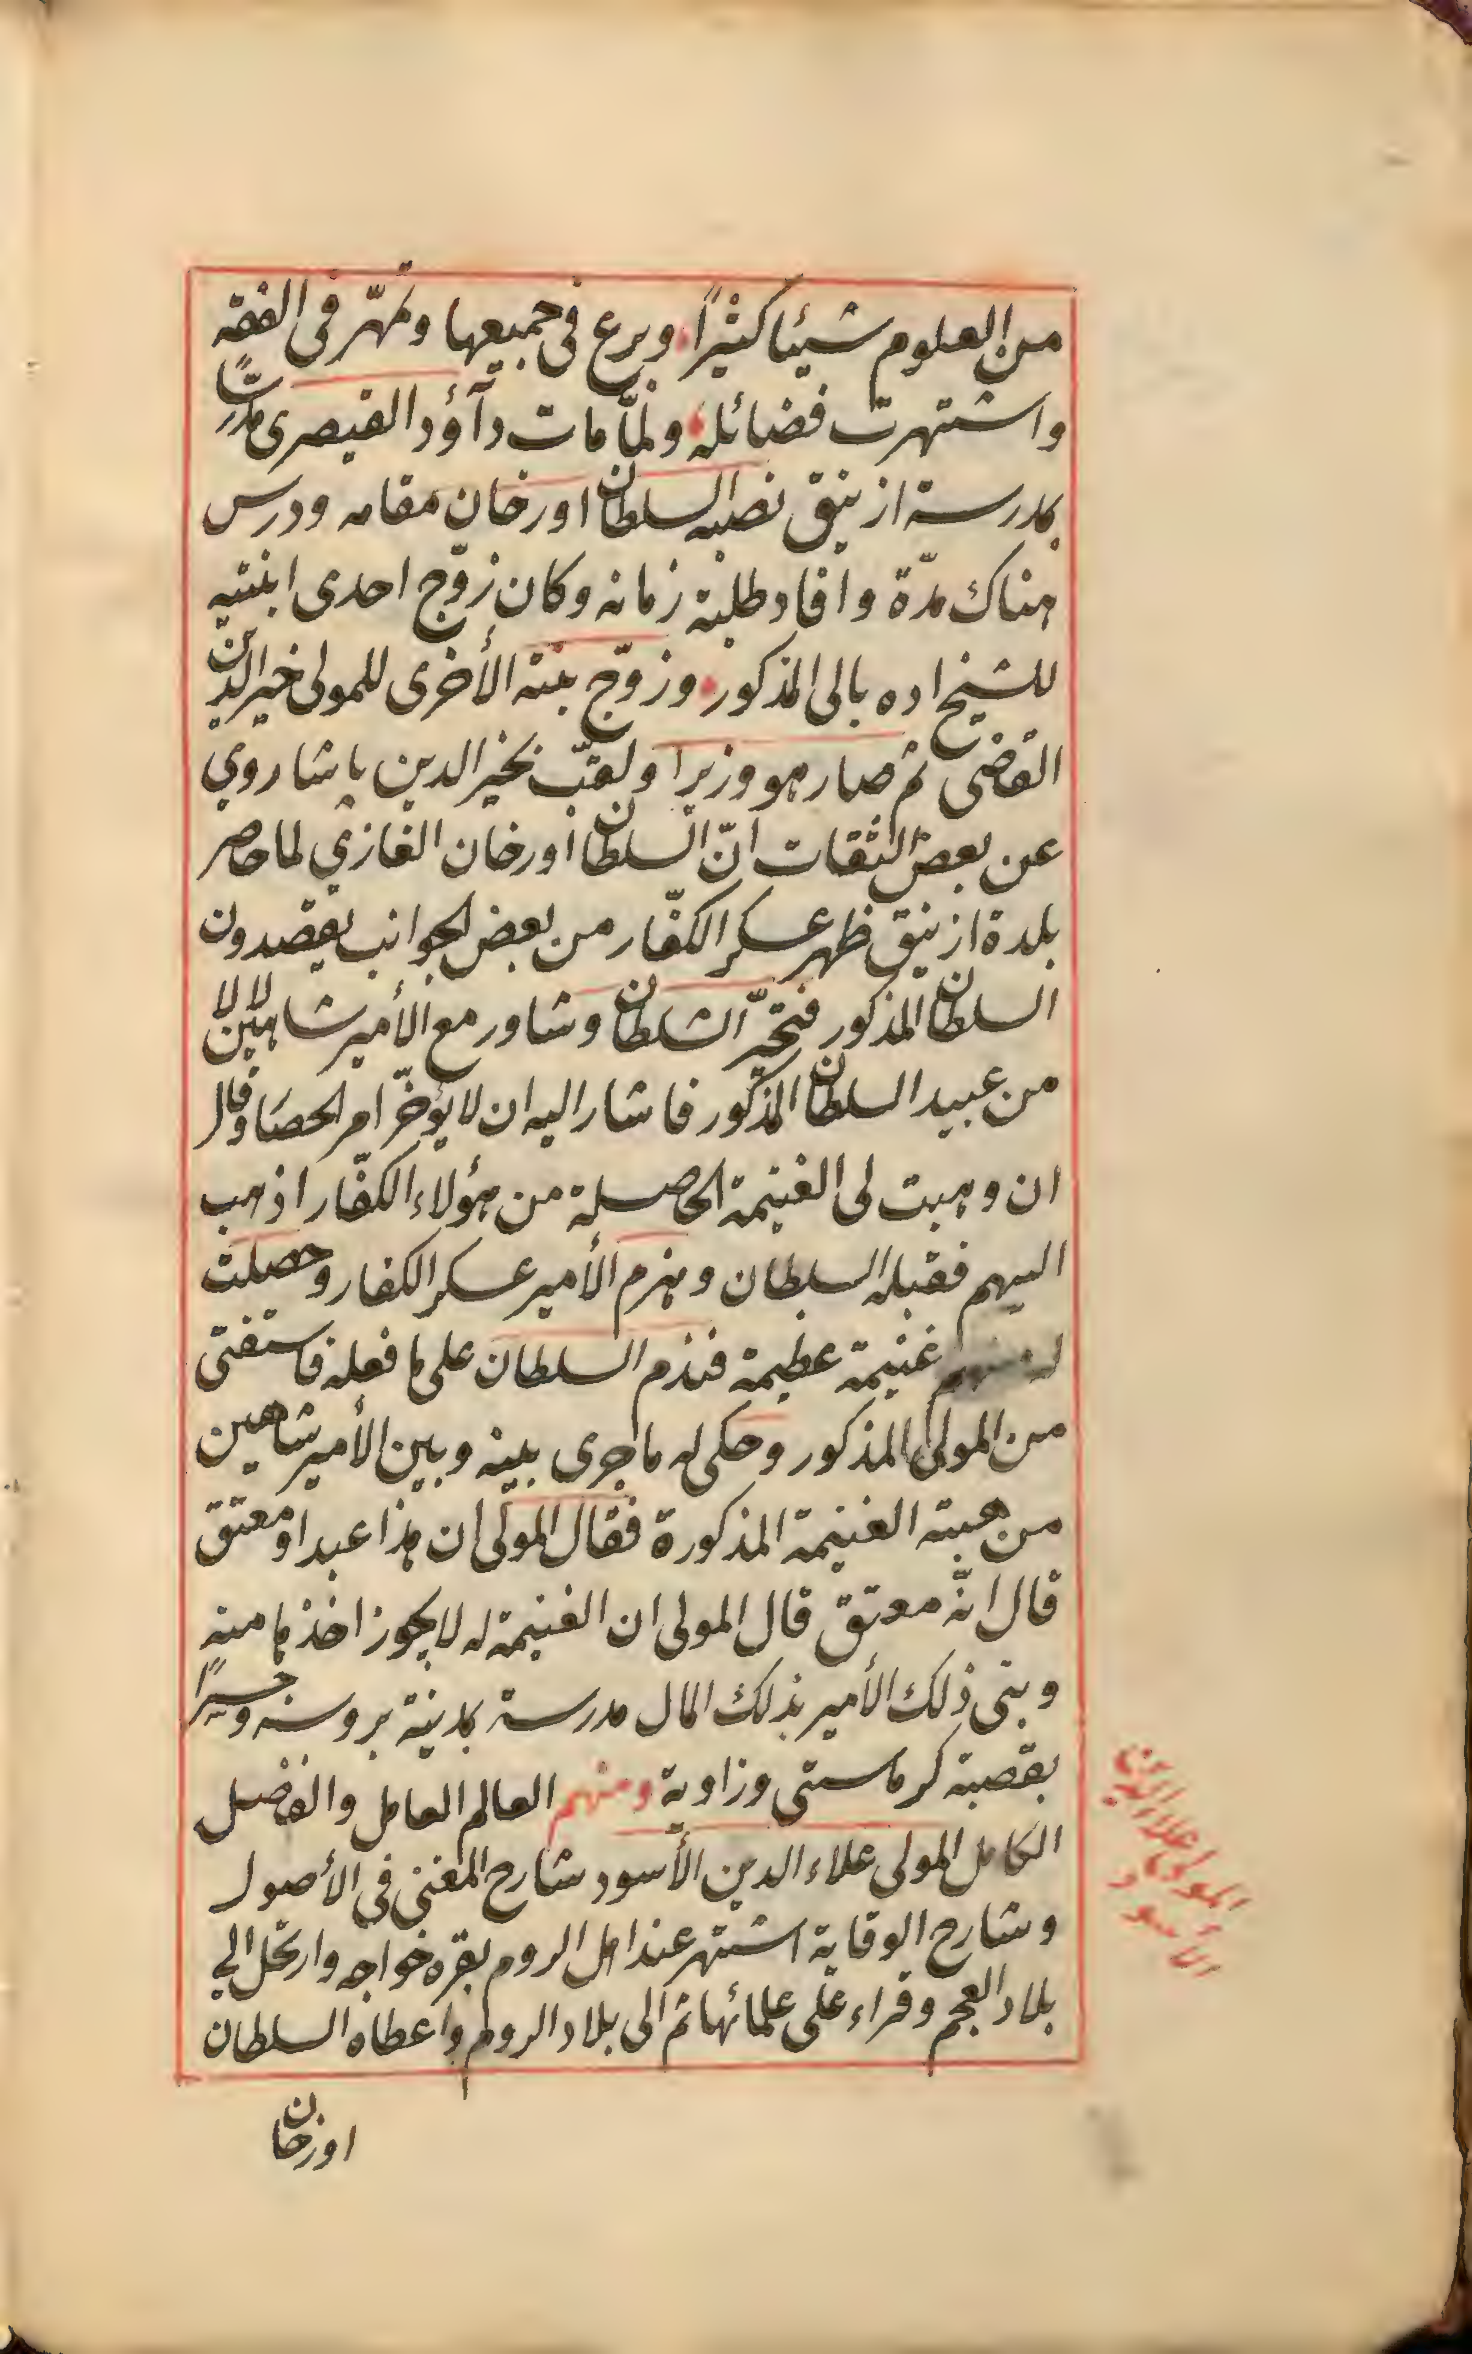 من العلوم شيئا كثيرًا وبرع فى جميعها وتمهّر فى الفقه
واشتهرت فضائله ولمّا مات دآؤد القيصرى مدرسًا
بمدرسة ازنيق نصبه السلطان اورخان مقامه ودرس
هناك مدّة وافاد طلبة زمانه وكان زوّج احدى ابنتيه
للشيخ اده بالى المذكور وزوّج بنته الأخرى للمولى خير الدين
القاضى ثم صار هو وزيرا ولقّب بخير الدين پاشا روي
عن بعض الثقات انّ السلطان أورخان الغازي لما حاصر
بلدة ازنيق ظهر عسكر الكفّار من بعض الجوانب يقصدون
السلطان المذكور فتحيّر السلطان وشاور مع الأمير شاهين لالا
من عبيد السلطان المذكور فاشار اليه ان لا يؤخّر امر الحصار وقال
ان وهبت لى الغنيمة الحاصلة من هؤلاء الكفّار اذهب
اليهم فقبله السلطان وهزم الأمير عسكر الكفار وحصلت
له منهم غنيمة عظيمة فندم السلطان على ما فعله فاستفتى
من المولى المذكور وحكى له ما جرى بينه وبين الأمير شاهين
من هبة الغنيمة المذكورة فقال المولى ان هذا عبد او معتق
قال انّه معتق قال المولى ان الغنيمة له لا يجوز اخذها منه
وبنى ذلك الأمير بذلك المال مدرسة بمدينة بروسه وجسرًا
بقصبة كرماستى وزاوية ومنهم العالم العامل والفاضل
الكامل المولى علاء الدين الأسود شارح المغنى فى الأصول
وشارح الوقاية اشتهر عند اهل الروم بقره خواجه وارتحل الي
بلاد العجم وقراء على علمائها ثم الى بلاد الروم واعطاه السلطان
اورخان
المولى علاء الدين
الأسود